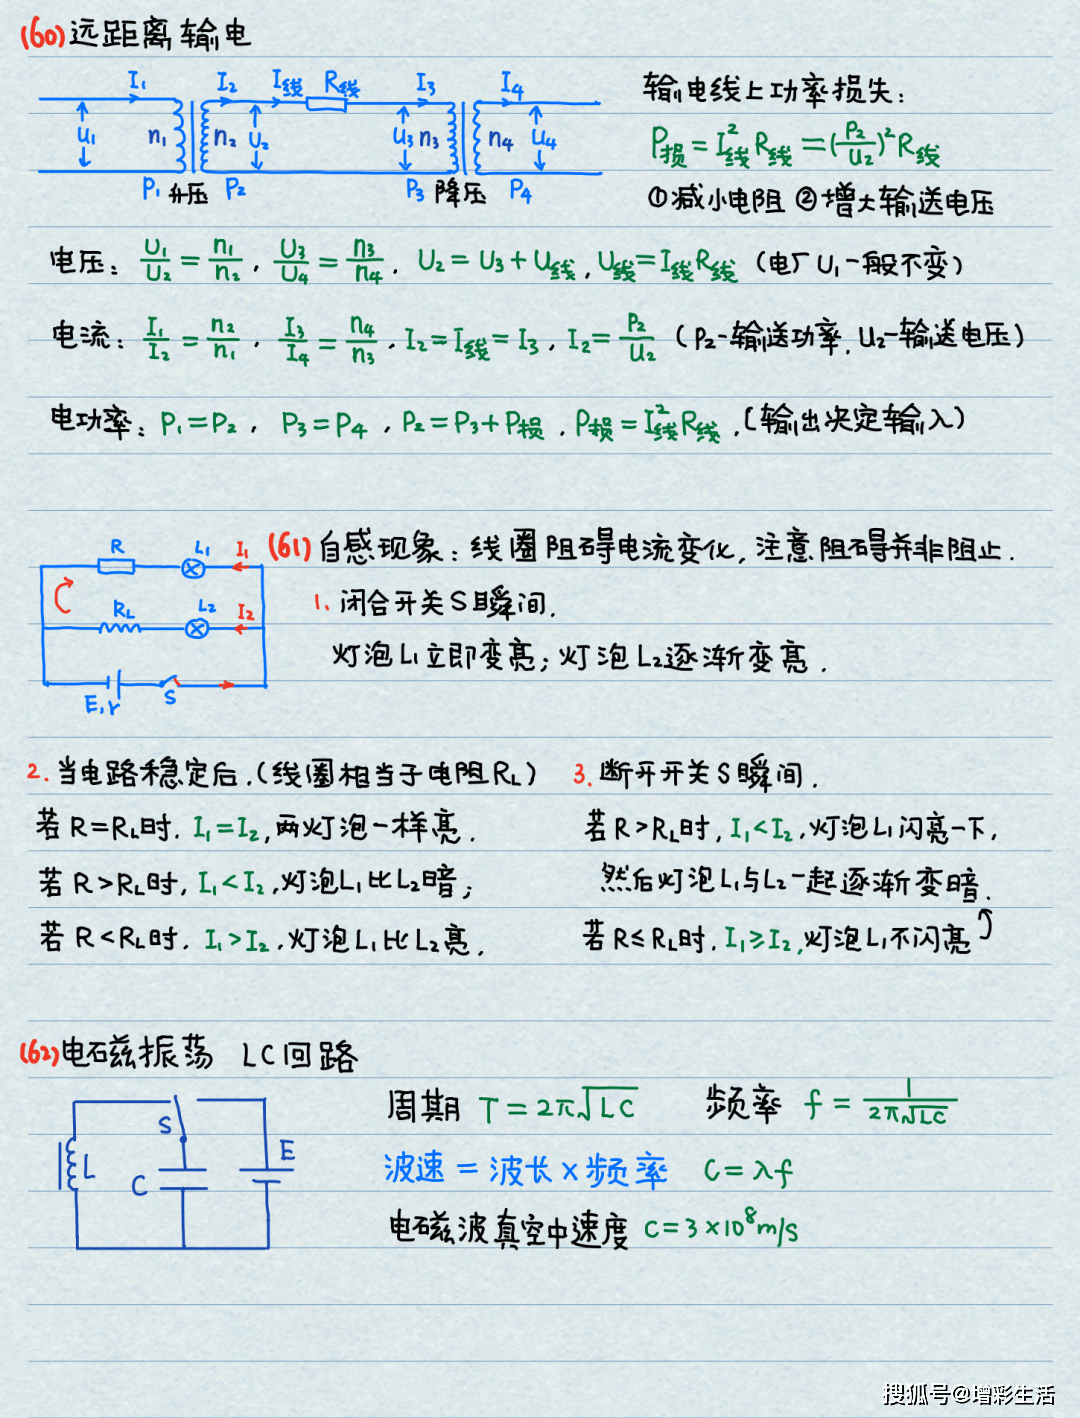 (60)远距离输电
I₁ I₂ I线 R线 I₃ I₄
U₁ n₁ n₂ U₂ U₃ n₃ n₄ U₄
P₁ 升压 P₂ P₃ 降压 P₄
输电线上功率损失:
P损=I线²R线=(P₂/U₂)²R线
①减小电阻 ②增大输送电压
电压: U₁/U₂=n₁/n₂, U₃/U₄=n₃/n₄, U₂=U₃+U线, U线=I线R线 (电厂U₁一般不变)
电流: I₁/I₂=n₂/n₁, I₃/I₄=n₄/n₃, I₂=I线=I₃, I₂=P₂/U₂ (P₂-输送功率, U₂-输送电压)
电功率: P₁=P₂, P₃=P₄, P₂=P₃+P损, P损=I线²R线, (输出决定输入)
R L₁ I₁
RL L₂ I₂
E,r S
(61)自感现象: 线圈阻碍电流变化, 注意阻碍并非阻止.
1. 闭合开关S瞬间.
灯泡L₁立即变亮; 灯泡L₂逐渐变亮.
2. 当电路稳定后.(线圈相当于电阻RL)
若R=RL时. I₁=I₂, 两灯泡一样亮.
若R>RL时, I₁<I₂, 灯泡L₁比L₂暗;
若R<RL时. I₁>I₂. 灯泡L₁比L₂亮.
3. 断开开关S瞬间.
若R>RL时, I₁<I₂, 灯泡L₁闪亮一下,
然后灯泡L₁与L₂一起逐渐变暗.
若R≤RL时. I₁≥I₂, 灯泡L₁不闪亮
(62)电磁振荡 LC回路
S L C E
周期 T=2π√LC 频率 f=1/2π√LC
波速=波长×频率 C=λf
电磁波真空中速度 C=3×10⁸m/s
搜狐号@增彩生活